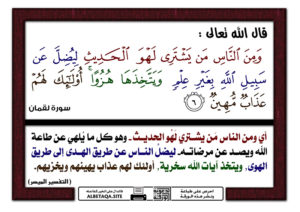 قال الله تعالى :
وَمِنَ النَّاسِ مَن يَشْتَرِي لَهْوَ الْحَدِيثِ لِيُضِلَّ عَن
سَبِيلِ اللَّهِ بِغَيْرِ عِلْمٍ وَيَتَّخِذَهَا هُزُوًا ۚ أُولَٰئِكَ لَهُمْ
عَذَابٌ مُّهِينٌ ٦
سورة لقمان
أي ومن الناس مَن يشتري لَهْو الحديث - وهو كل ما يُلهي عن طاعة
الله ويصد عن مرضاته. ليضلَّ الناس عن طريق الهدى إلى طريق
الهوى, ويتخذ آيات الله سخرية, أولئك لهم عذاب يهينهم ويخزيهم.
( التفسير الميسر )
ALBETAQA.SITE
احرص على طباعة